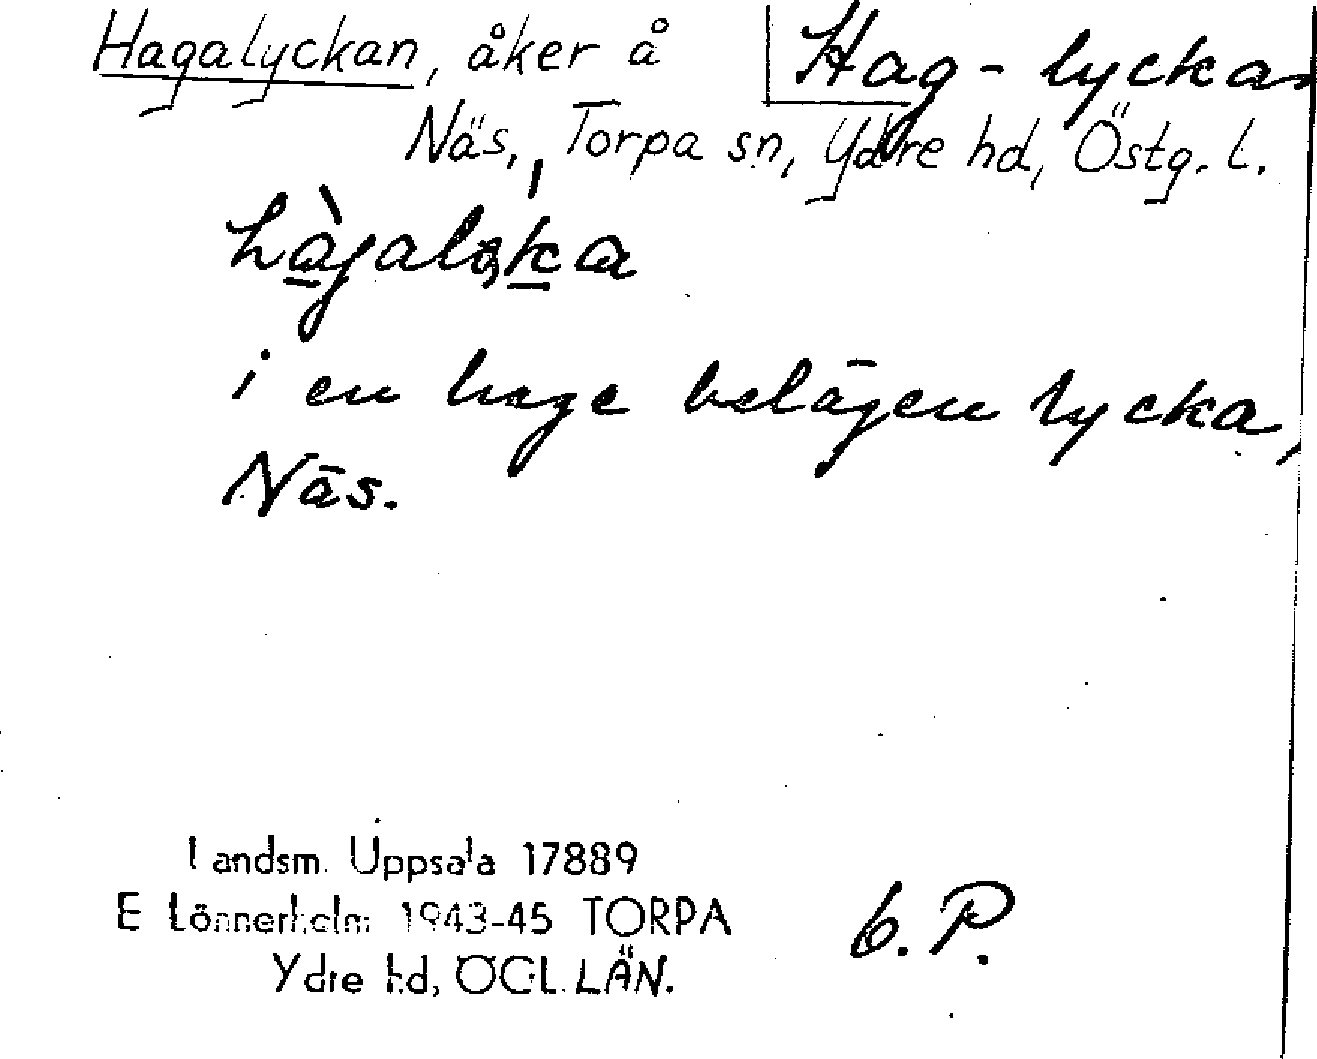 Hagalyckan, åker å
Hag-lyckan
Näs, Torpa sn, Ydre hd, Östg. l.
i en hage belägen lycka,
Näs.
Landsm. Uppsala 17889
E Lönnerholm 1943-45 TORPA
Ydre hd, ÖGL. LÄN.
6. P.